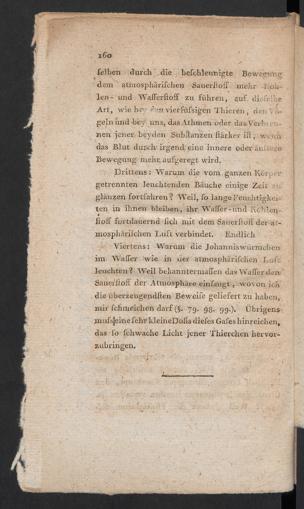 160
selben durch die beschleunigte Bewegung
dem atmosphärischen Sauerstoff mehr Koh-
len- und Wasserstoff zu führen, auf dieselbe
Art, wie bey den vierfüssigen Thieren, den Vö-
geln und bey uns, das Athmen oder das Verbren-
nen jener beyden Substanzen stärker ist, wenn
das Blut durch irgend eine innere oder äussere
Bewegung mehr aufgeregt wird.
Drittens: Warum die vom ganzen Körper
getrennten leuchtenden Bäuche einige Zeit zu
glänzen fortfahren? Weil, so lange Feuchtigkei-
ten in ihnen bleiben, ihr Wasser- und Kohlen-
stoff fortdauernd sich mit dem Sauerstoff der at-
mosphärischen Luft verbindet. Endlich
Viertens: Warum die Johanniswürmchen
im Wasser wie in der atmosphärischen Luft
leuchten? Weil bekanntermassen das Wasser den
Sauerstoff der Atmosphäre einsaugt, wovon ich
die überzeugendsten Beweise geliefert zu haben,
mir schmeicheln darf (§. 79. 98. 99.). Übrigens
muss eine sehr kleine Dosis dieses Gases hinreichen,
das so schwache Licht jener Thierchen hervor-
zubringen.